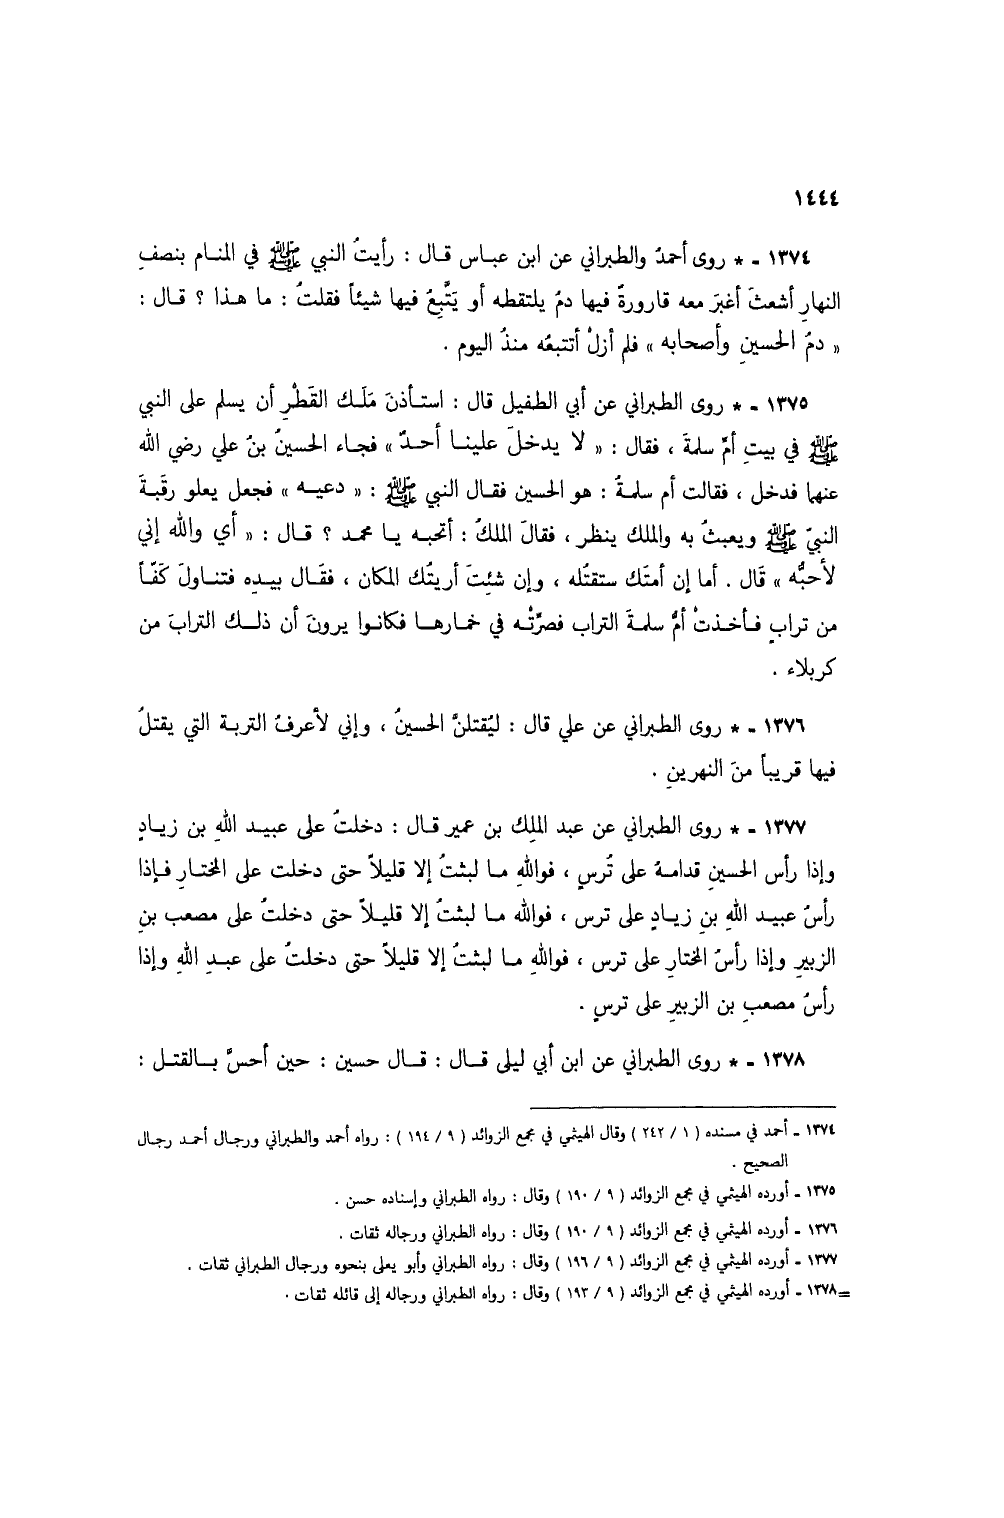 ١٤٤٤
١٣٧٤ - * روى أحمدُ والطبراني عن ابن عباس قال : رأيتُ النبي ﷺ في المنام بنصفِ
النهارِ أشعثَ أغبَرَ معه قارورةً فيها دمُ يلتقطه أو يَتَّبِعُ فيها شيئاً فقلتُ : ما هذا ؟ قال :
« دمُ الحسينِ وأصحابه » فلم أزلْ أتتبعُه منذُ اليوم .
١٣٧٥ - * روى الطبراني عن أبي الطفيل قال : استأذنَ مَلَك القَطْرِ أن يسلم على النبي
ﷺ في بيتِ أمِّ سلمةَ ، فقال : « لا يدخلَ علينا أحدٌ » فجاء الحسينُ بنُ علي رضي الله
عنهما فدخل ، فقالت أم سلمةُ : هو الحسين فقال النبي ﷺ : « دعيه » فجعل يعلو رقَبةَ
النبيِّ ﷺ ويعبثُ به والملك ينظر ، فقالَ الملكُ : أتحبه يا محمد ؟ قال : « أي والله إني
لأحبُّه » قَال . أما إن أمتَك ستقتُله ، وإن شئتَ أريتُك المكان ، فقَال بيدِه فتناولَ كَفّاً
من ترابٍ فأخذتْ أمُّ سلمةَ التراب فصرَّتْه في خمارها فكانوا يرونَ أن ذلك الترابَ من
كربلاء .
١٣٧٦ - * روى الطبراني عن علي قال : ليُقتلنَّ الحسينُ ، وإني لأعرفُ التربة التي يقتلُ
فيها قريباً منَ النهرينِ .
١٣٧٧ - * روى الطبراني عن عبد الملِك بن عمير قال : دخلتُ على عبيد اللهِ بن زيادٍ
وإذا رأس الحسينِ قدامهُ على تُرسٍ ، فواللهِ ما لبثتُ إلا قليلاً حتى دخلت على المختارِ فإذا
رأسُ عبيد اللهِ بنِ زيادٍ على ترس ، فوالله ما لبثتُ إلا قليلاً حتى دخلتُ على مصعب بنِ
الزبيرِ وإذا رأسُ المختارِ على ترس ، فواللهِ ما لبثتُ إلا قليلاً حتى دخلتُ على عبدِ اللهِ وإذا
رأسُ مصعبِ بن الزبيرِ على ترسٍ .
١٣٧٨ - * روى الطبراني عن ابن أبي ليلى قال : قال حسين : حين أحسَّ بالقتل :
١٣٧٤ - أحمد في مسنده ( ١ / ٢٤٢ ) وقال الهيثمي في مجمع الزوائد ( ٩ / ١٩٤ ) : رواه أحمد والطبراني ورجال أحمد رجال
الصحيح .
١٣٧٥ - أورده الهيثمي في مجمع الزوائد ( ٩ / ١٩٠ ) وقال : رواه الطبراني وإسناده حسن .
١٣٧٦ - أورده الهيثمي في مجمع الزوائد ( ٩ / ١٩٠ ) وقال : رواه الطبراني ورجاله ثقات .
١٣٧٧ - أورده الهيثمي في مجمع الزوائد ( ٩ / ١٩٦ ) وقال : رواه الطبراني وأبو يعلى بنحوه ورجال الطبراني ثقات .
=١٣٧٨ - أورده الهيثمي في مجمع الزوائد ( ٩ / ١٩٣ ) وقال : رواه الطبراني ورجاله إلى قائله ثقات .